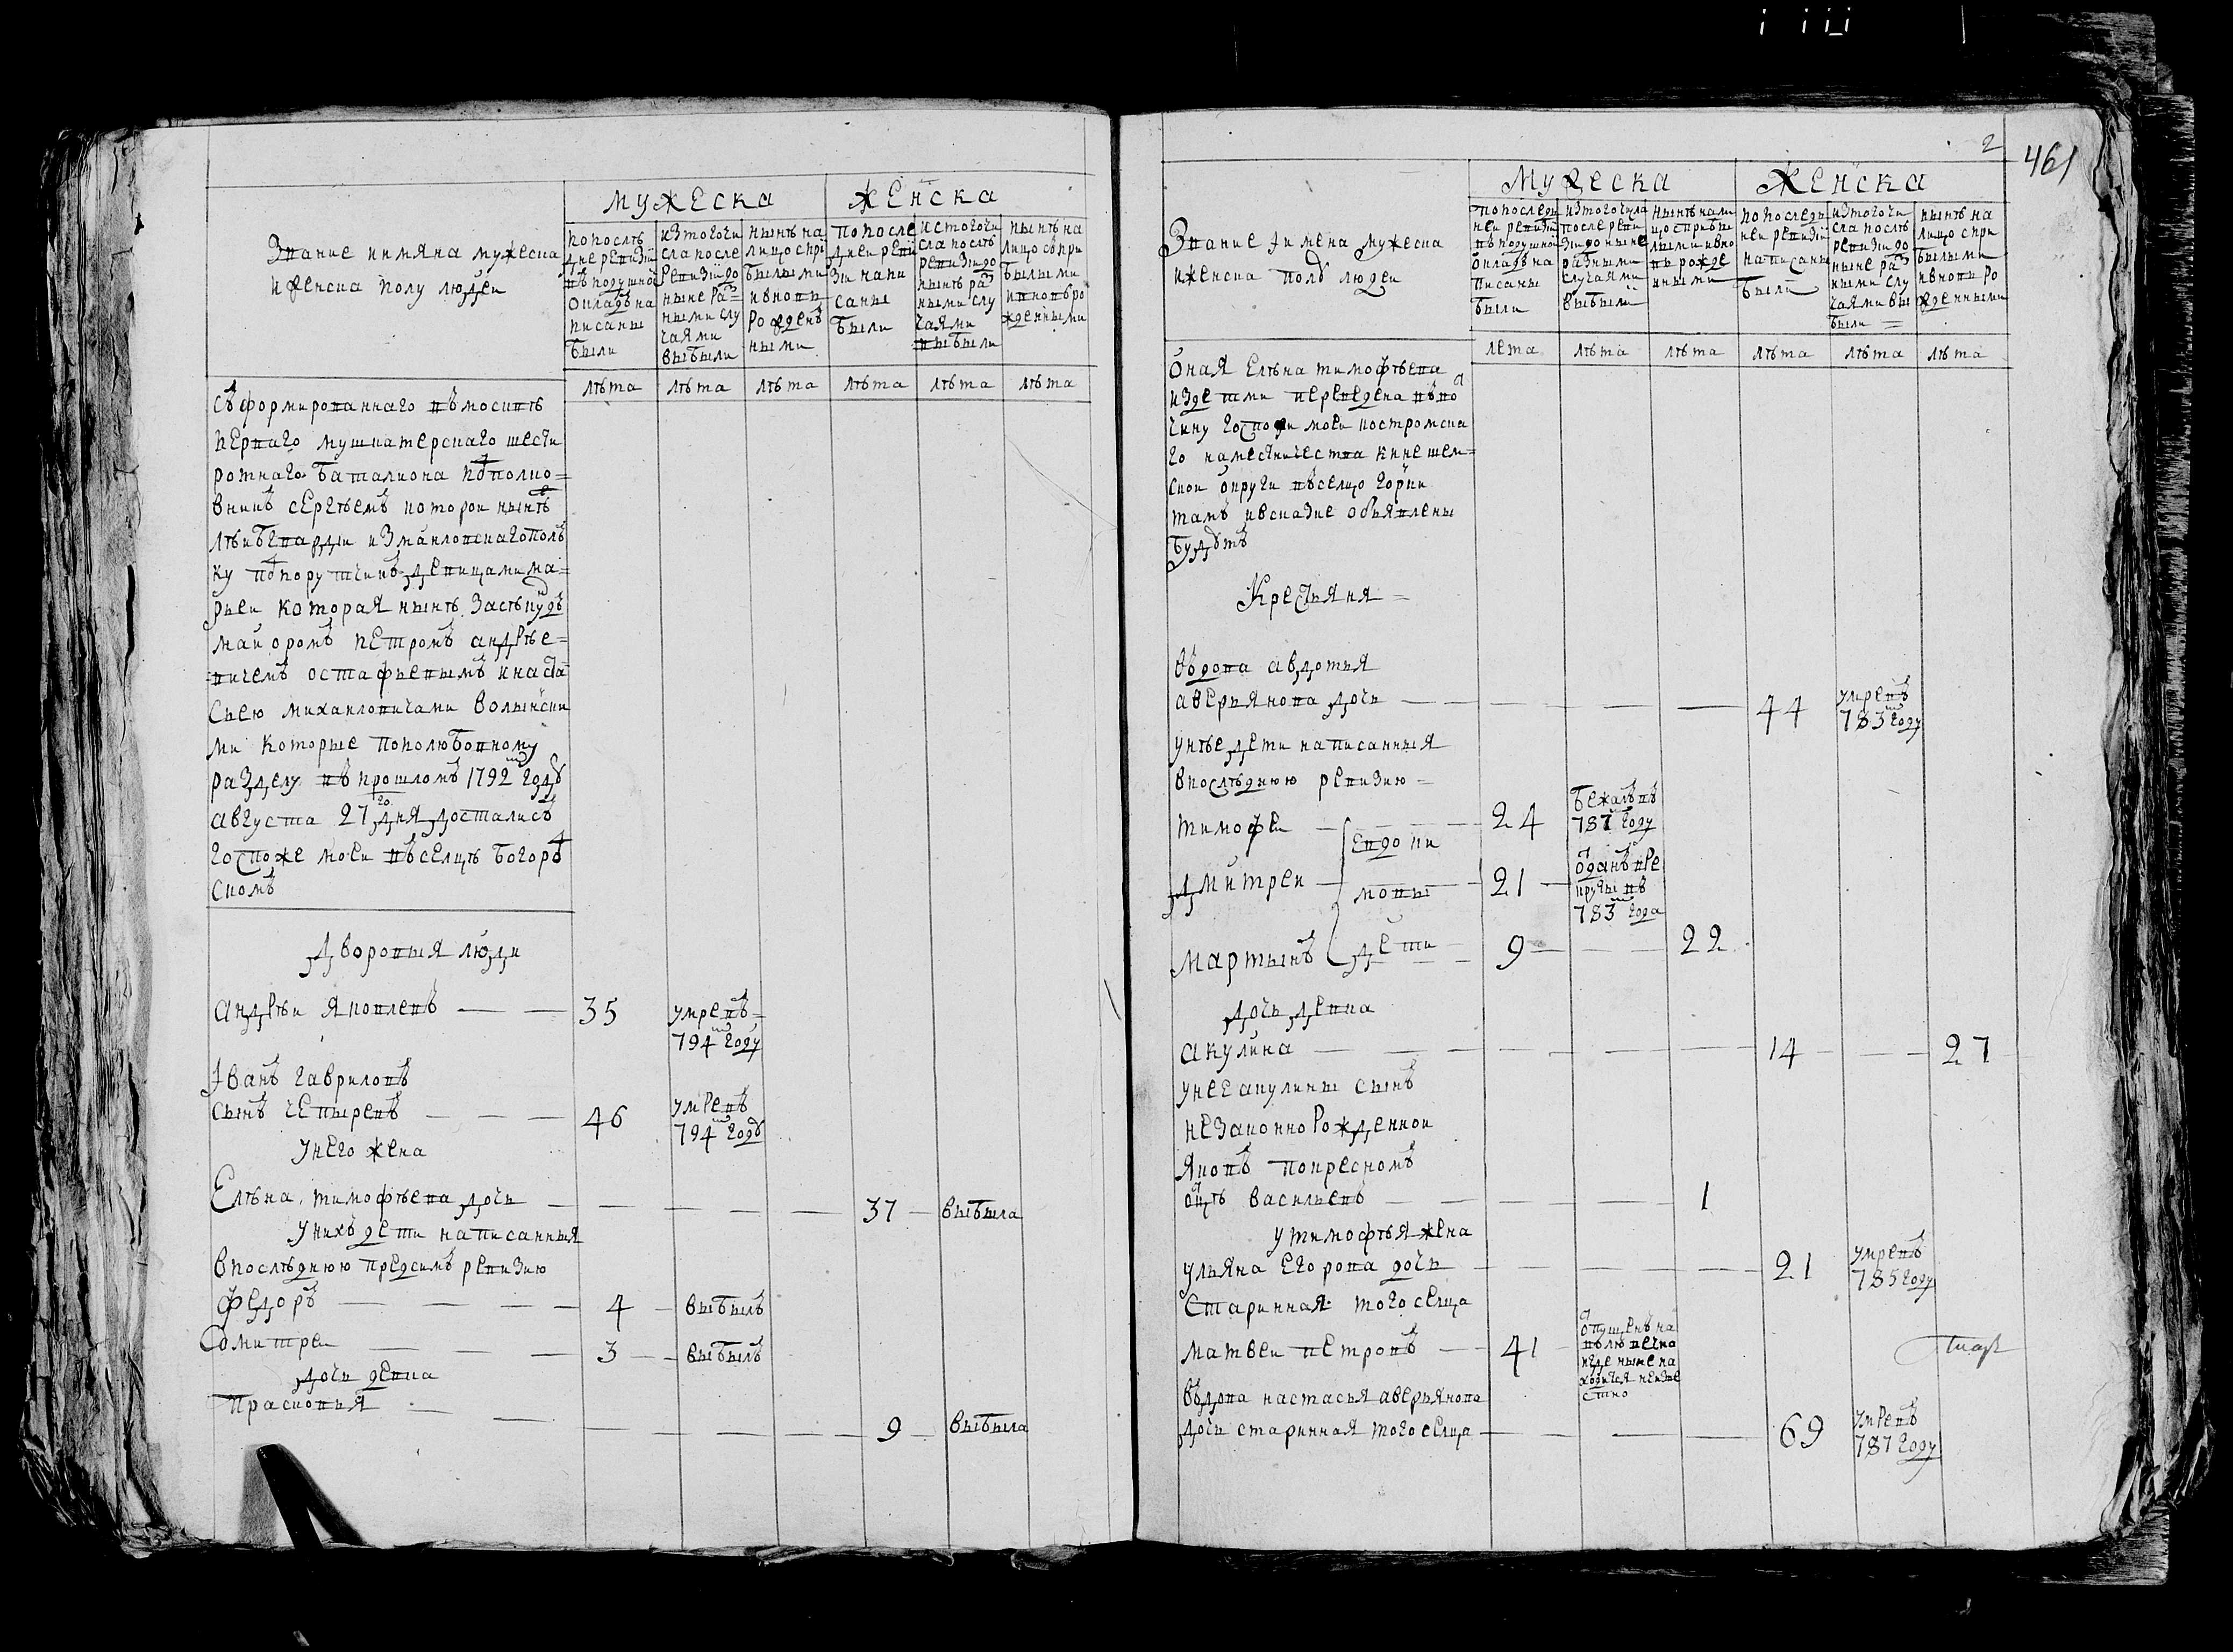 мужеска
женска
Звание иимяна мужеска
ибженска полу людеи
попослѣ
дне ревизïи
въ подушной
окладъ на
писаны
были
изтогочи
сла после
ревизïи до
ныне раз=
ными слу
чаями
выбыли
нынѣ на
лицо спри
былыми
ивновь
рожденъ
ными
попосле
днеи реви
зи напи
саны
были
истогочи
сла послѣ
ревизи до
нынѣ раз
ными слу
чаями
выбыли
нынѣ на
лицо съпри
былыми
ивновъро
жденными
лѣта лѣта лѣта лѣта лѣта лѣта
съформированнаго въмосквѣ
перваго мушкатерскаго шести
ротнаго баталиона подполко=
вникъ сергѣемъ которой нынѣ
лѣибгвардiи измаиловскагополъ
ку подпорутчикъ девицами ма=
рьеи которая нынѣ засѣкудъ
маиоромъ петромъ андрѣе=
=вичемъ остафьевымъ инаста
сьею михаиловичами волынски
ми которые пополюбовному
разделу въ прошломъ 1792м годѣ
августа 27го дня досталисъ
госпоже моеи въселцѣ богород
скомъ
Дворовыя люди
Андрѣи яковлевъ — — 35 умревъ=
794м году
Iванъ гавриловъ
сынъ чепыревъ — — — 46 умревъ
794м годѣ
унего жена
Елѣна тимофѣева дочь — — — — — 37 — выбыла
унихъ дети написанныя
впослѣднюю предсимъ ревизию
Федоръ — — — — 4 — выбылъ
Дмитреи — — — 3 — выбылъ
дочь девка
Прасковья — — — — — — 9 — выбыла
2
461
Мужеска
Женска
Звание iимена мужеска
иженска полѣ людеи
попоследн
неи ревизïи
въ подушной
окладъ на
писаны
были
изтогочисла
после реви
зïи до ныне
разными
случаями
выбыли
нынѣ нали
цо сприбы
лыми ивно
вь рожде
нными
попоследн
неи ревизïи
написаны
были
изтогочи
сла послѣ
ревизи до
ныне раз
ными слу
чаями вы
были =
нынѣ на
лицо спри
былыми
ивновь ро
жденными
лета лѣта лѣта лѣта лѣта лѣта
оная елѣна тимофѣева
издетми переведена въвот
чину госпожи моеи костромска
го наместничества кинешем=
скои округи въселцо горки
тамъ ивсказке объявлены
будѣтъ
Крестьяня =
Вдова авдотья
аверьянова дочь — — — — — 44 умревъ
783м году
унѣе дети написанныя
впослѣднюю ревизию =
тимофеи — — — 24 бежалъ въ
787м году
евдоки
Дмитреи — мовы — 21 — отданъ вре
круты въ
783м года
Мартынъ дети — 9 — — 22
дочь девка
акулина — — — — — — 14 — — 27
унее акулины сынъ
незаконнорожденнои
яковъ покресномъ
отцѣ васильевъ — — — — 1
утимофѣя жена
ульяна егорова дочь — — — — — 21 умревъ
785 году
старинная того селца
матвеи петровъ — — 41 — отпущенъ на
волю вечно
игде ныне на
ходится неизве
стно
вдова настасья аверьянова
дочь старинная того селца — — — — 69 умревъ
787 году